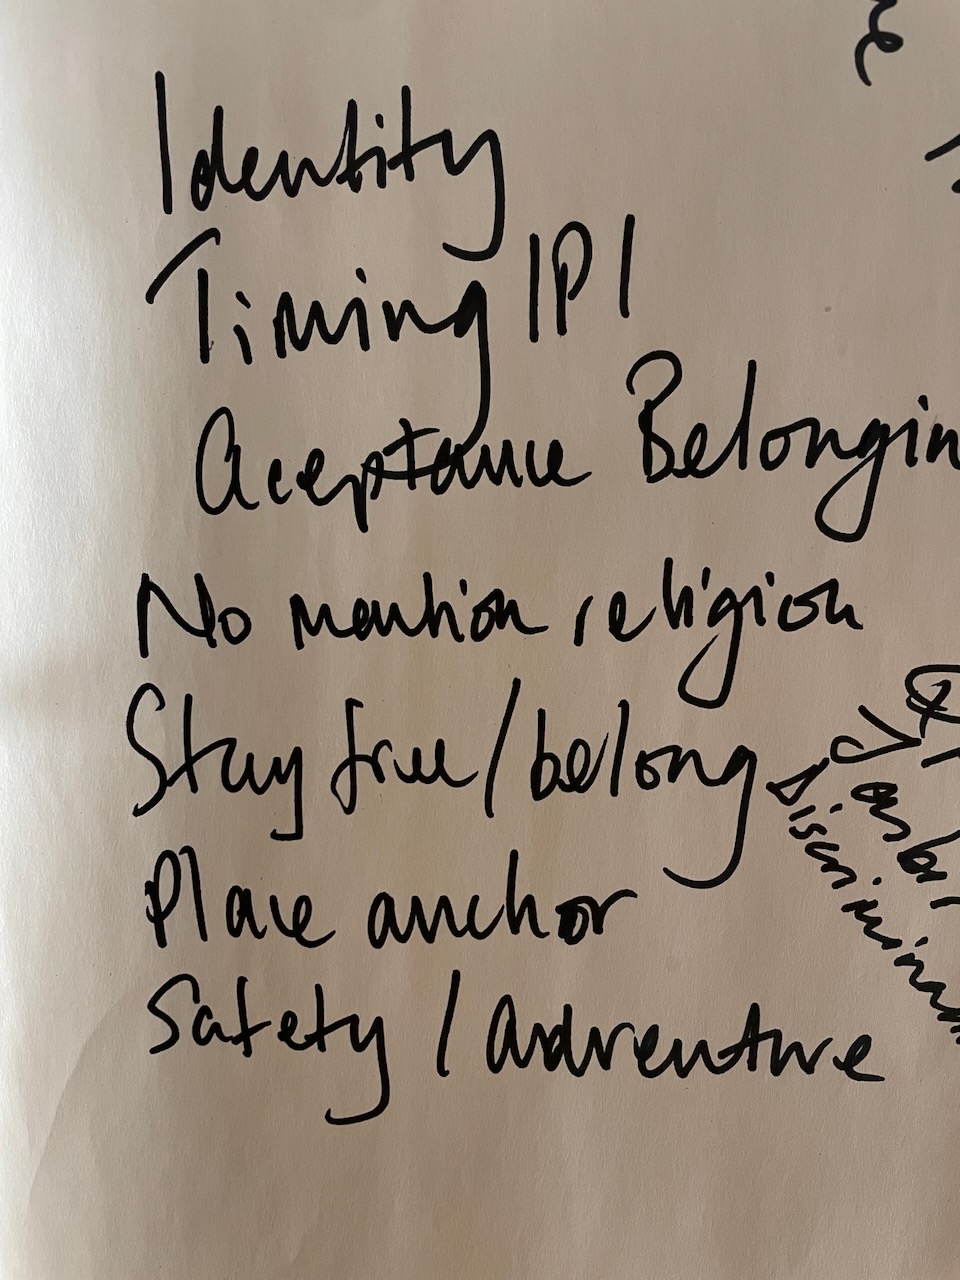 Identity
Timing IPI
Aceptance Belongin
No mention religion
Stay free/belong
Place anchor
Safety / Adventure
Discriminat